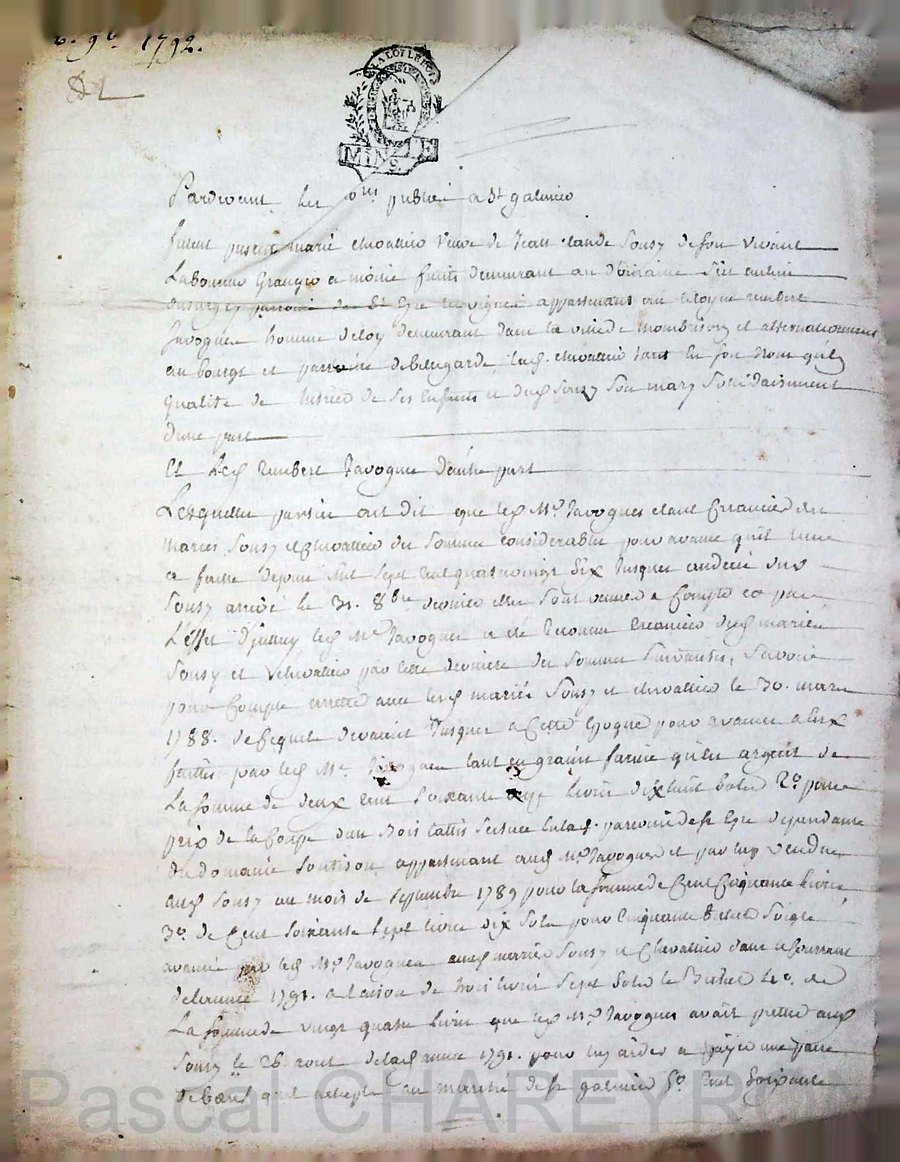 9e. 1792.
LA LOI LE ROI
MIN
Pardevant les nres publics a St galmier
furent presens marie chevallier veuve de Jean claude Sousy de son vivant
Laboureur Granger a moitié fruits demeurant au domaine
parroisse de St Cyr les vignes appartenant au citoyen rambert
Javogues homme de loy demeurant dans la ville de Montbrison et alternativement
au bourgt et parroisse de bellegarde, chevallier tant en son nom qu'en
qualité de tutrice de ses enfants et Sousy son mary Solidairement
d'une part
Et rambert Javogues d'autre part
Lesquelles parties ont dit que Mr Javogues étant créancier des
mariés Sousy et Chevallier de sommes considerables pour avance qu'il
a faite depuis mil sept cent quatrevingt Six Jusques au décès
Sousy arrivé le 31. 8bre dernier elles sont venues a compte
L'effet duquel Mr Javogues a été reconnu créancier mariés
Sousy et Chevallier par cette derniere des sommes suivantes, Savoir
pour compte arretté avec mariés Sousy et chevallier le 30. mars
1788. devaient Jusques a cette Epoque pour avances a Eux
faittes par Mr Javogues tant en grain farine qu'en argent de
La somme de deux cent soixante livres dix huit sols 2o. pour
prix de la coupe d'un bois taillis parroisse de St Cyr dependante
du domaine appartenant Mr Javogues et par luy vendue
Sousy au mois de septembre 1789 pour la somme de Cent Cinquante livres
3o. de Cent soixante sept livres dix sols pour Cinquante bichets Seigle
avancé par Mr Javogues mariés Sousy et Chevallier dans le courrant
de l'année 1791. a raison de trois livres sept sols le Bichet 4o. de
La somme de vingt quatre livres que Mr Javogues avait prettée
Sousy le 26. aout année 1791. pour luy aider a payer une paire
de bœufs qu'il achepta au marché de St galmier 5o. Cent soixante
Pascal CHAREYRON